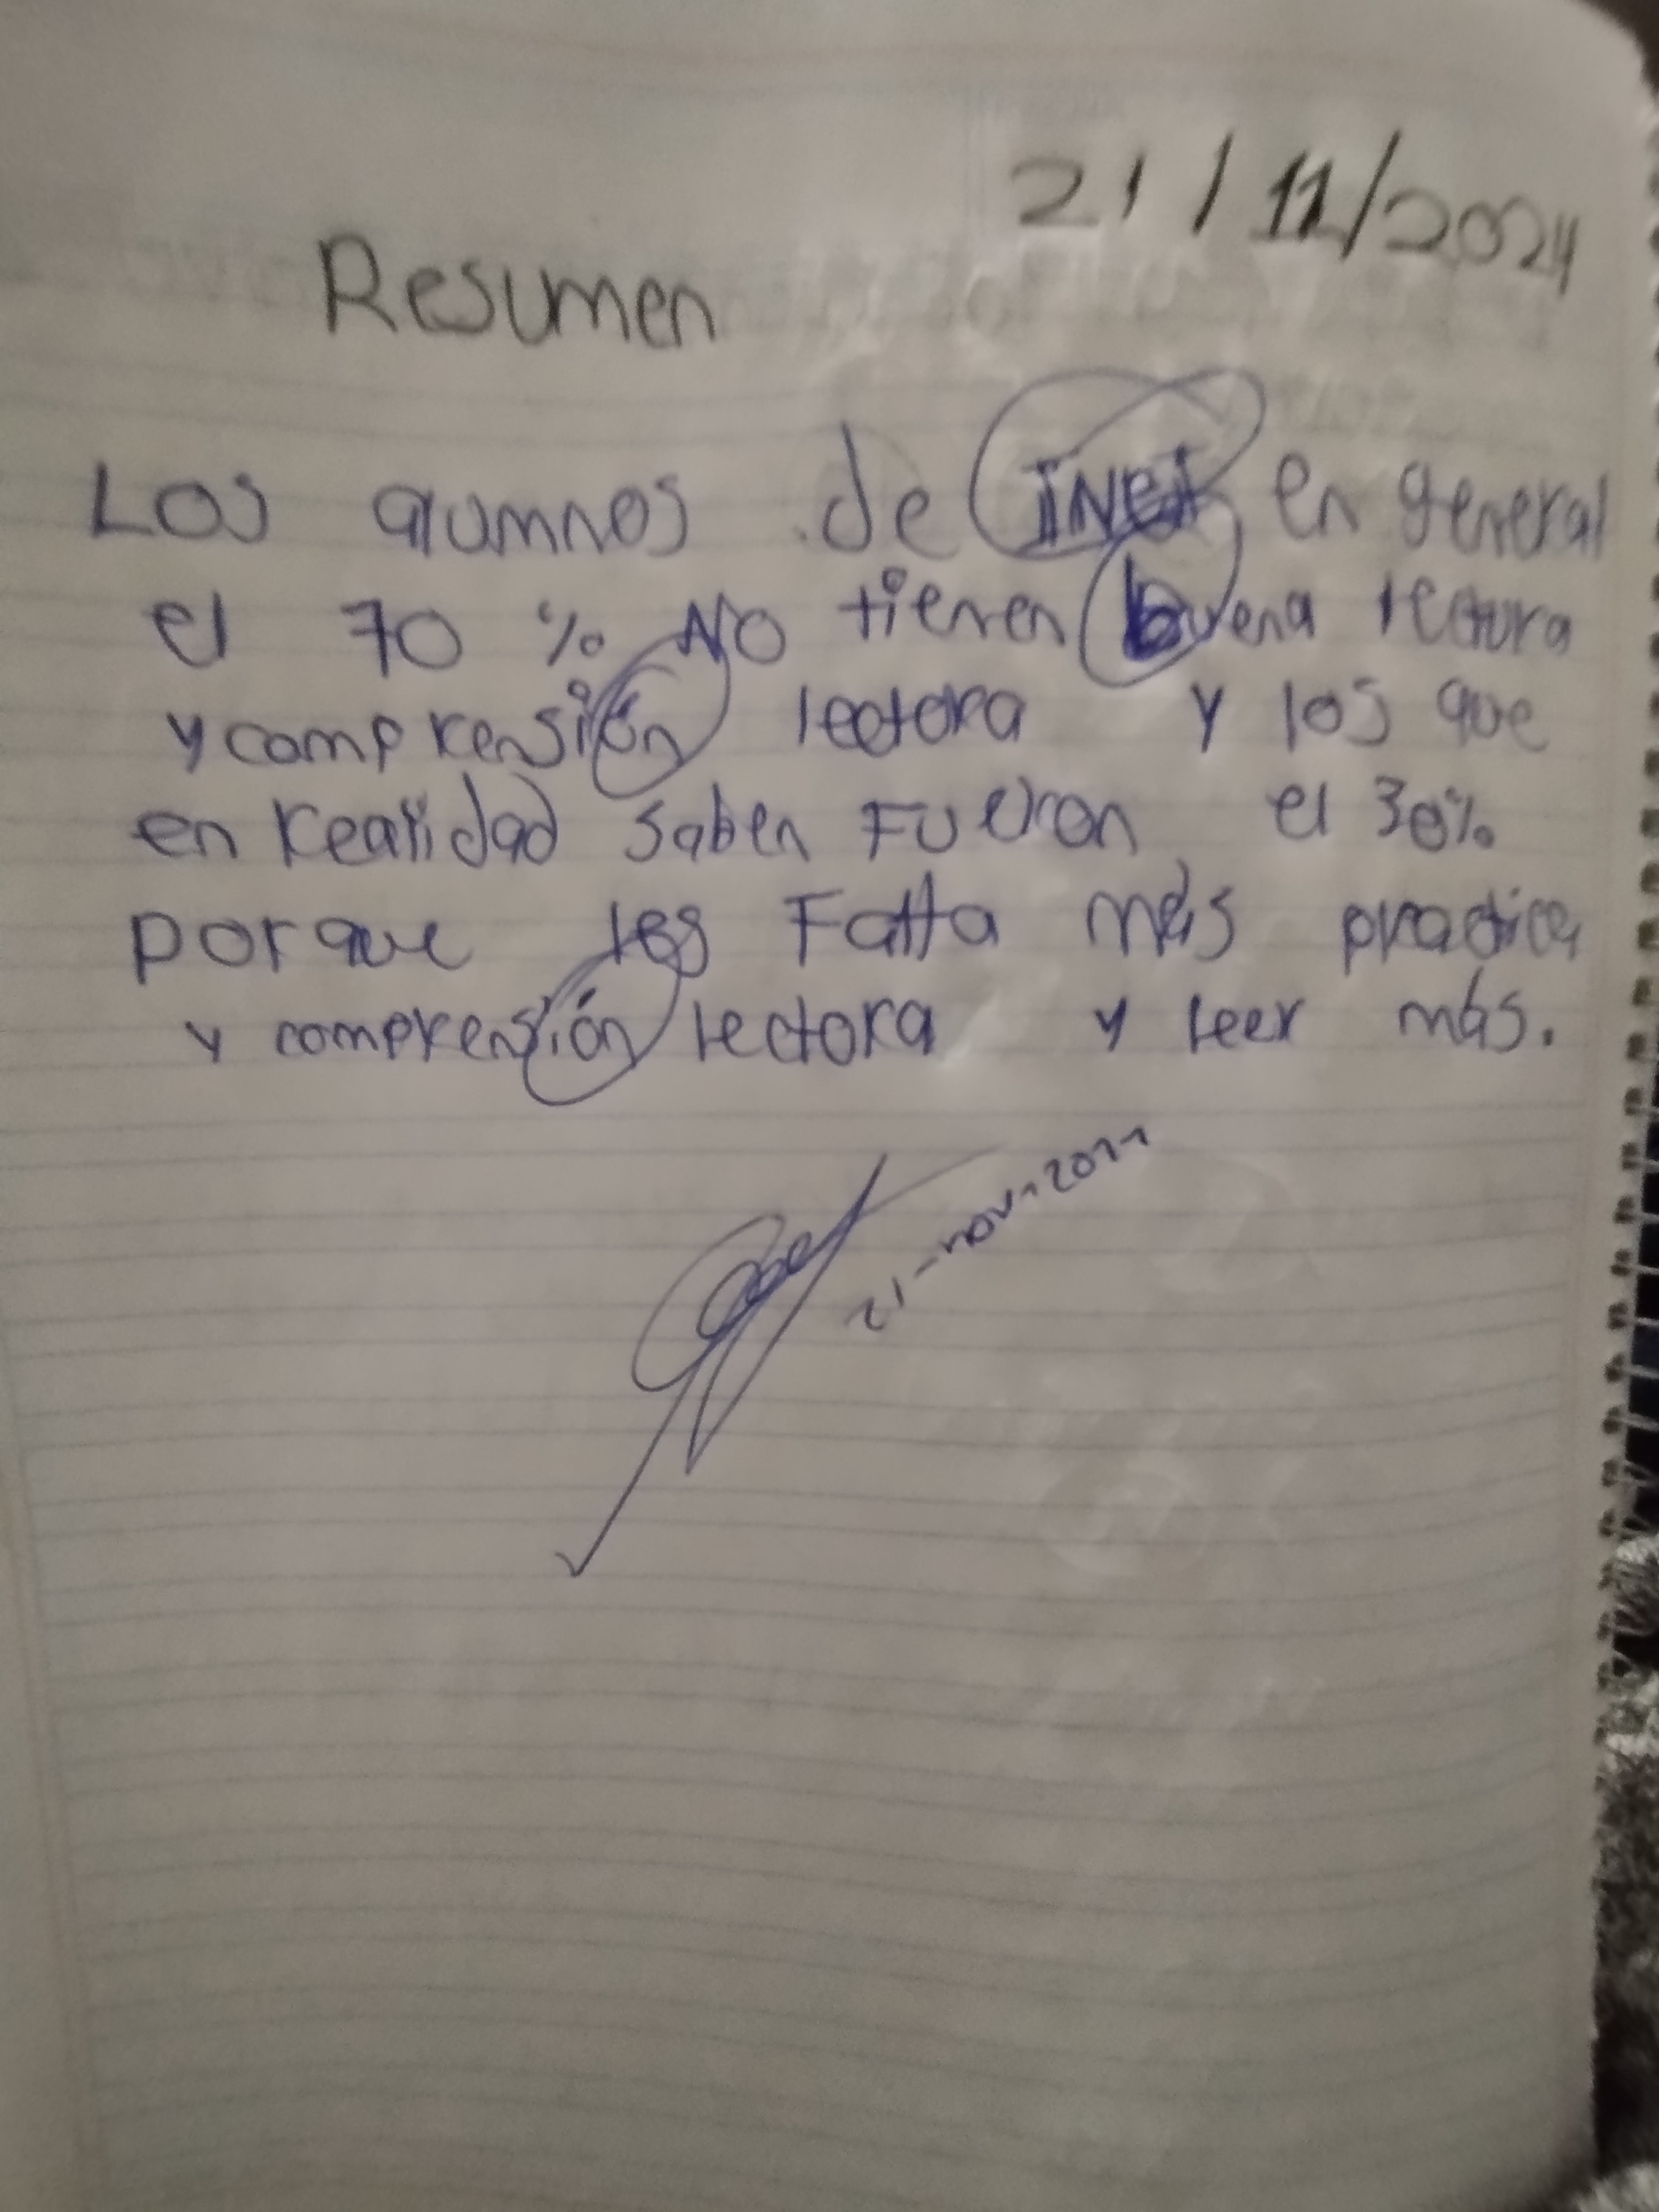 21/11/2024
Resumen
Los alumnos de en general
el 70 % NO tienen buena lectura
y comprensión lectora y los que
en realidad saben Fueron el 30%
porque les Falta más practica
y comprensión lectora y leer más.
21-nov-2011